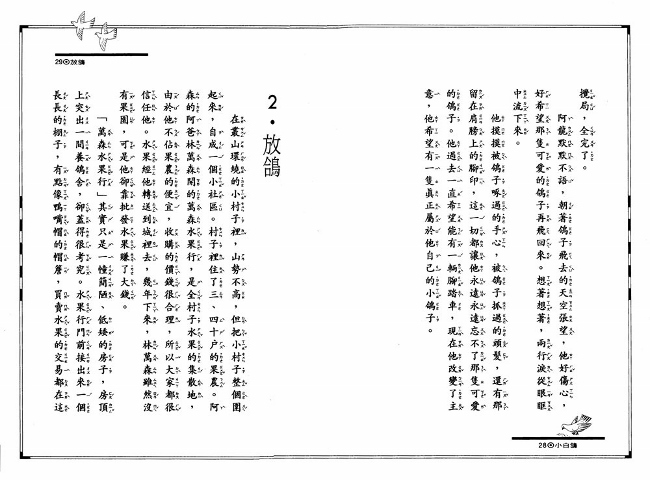 攪局，全完了。
　　阿龍默默不語，朝著鴿子飛去的天空張望，他好傷心，
好希望那隻可愛的鴿子再飛回來。想著想著，兩行淚從眼眶
中流下來。
　　他摸摸被鴿子啄過的手心，被鴿子抓過的頭髮，還有那
留在肩膀上的腳印，這一切都讓他永遠永遠忘不了那隻可愛
的鴿子。他過去一直希望能有一輛腳踏車，現在他改變了主
意，他希望有一隻真正屬於他自己的小鴿子。
28⊙小白鴿
29⊙放鴿
2．放鴿
　　在叢山環繞的小村子裡，山勢不高，但把小村子整個圍
起來，自成一個小社區。村子裡住了三、四十戶的果農。阿
森的阿爸林萬森開的萬森水果行，是全村子水果的集散地，
由於他不佔果農的便宜，收購的價錢很合理，所以大家都很
信任他。水果經他轉送到城裡去，幾年下來，林萬森雖然沒
有果園，可是他卻靠批發水果賺了大錢。
　　「萬森水果行」其實只是一幢簡陋、低矮的房子，房頂
上突出一間養鴿舍，卻蓋得很考究。水果行門前接出來一個
長長的棚子，有點像鴨嘴帽的帽簷，買賣水果的交易都在這